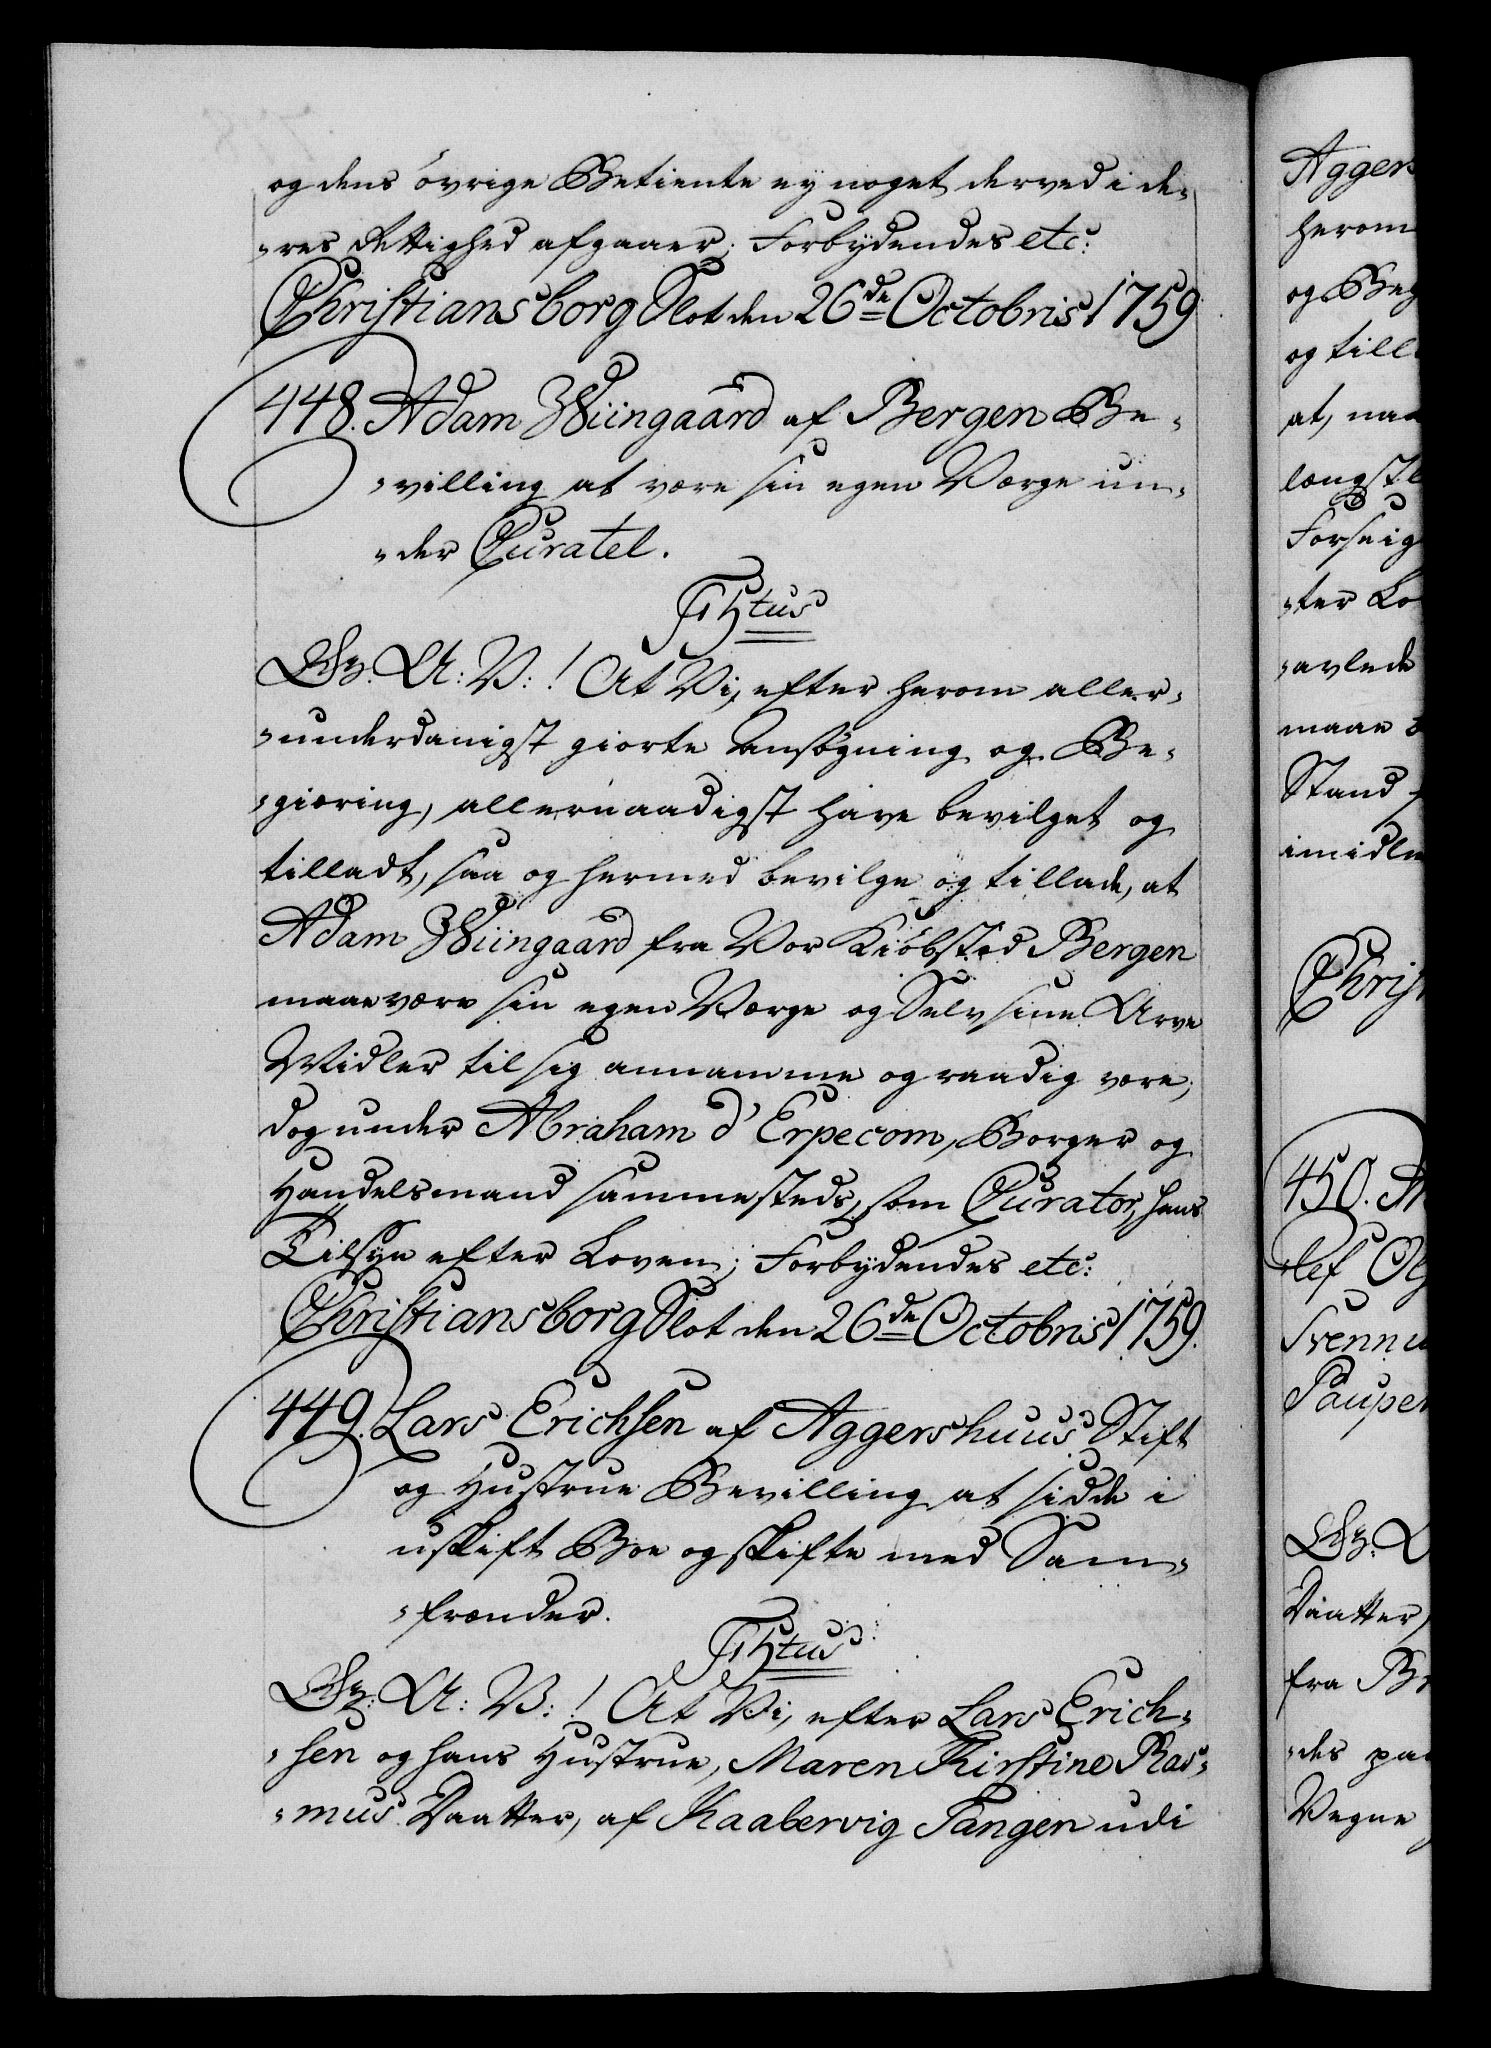 og dens øvrige Betiente ey noget derved i de-
-res Rettighed afgaaer; Forbydendes etc:
Christiansborg Slot den 26de Octobris 1759
448. Adam Wiingaard af Bergen Be-
-villing at være sin egen Værge un-
-der Curatel.
F5tus
Gr. A: V:! At Vi, efter herom aller-
-underdanigst giorte Ansøgning og Be-
-giæring, allernaadigst have bevilget og
tilladt, saa og hermed bevilge og tillade, at
Adam Wiingaard fra Vor Kiøbsted Bergen
maae være sin egen Værge og Selv sine Arve
Midler til sig annamme og raadig være,
dog under Abraham d' Erpecom, Borger og
Handelsmand sammesteds, som Curator, hans
Tilsyn efter Loven; Forbydendes etc:
Christiansborg Slot den 26de Octobris 1759.
449. Lars Erichsen af Aggershuus Stift
og Hustrue Bevilling at sidde i
uskift Boe og skifte med Sam-
-frænder.
F5tus
Gr: A: V:! At Vi, efter Lars Erich-
-sen og hans Hustrue, Maren Kirstine Ras-
-mus Daatter, af Kaabervig Tangen udi
Aggers
herom
og Beg
og till
at, naa
længstl
Forseig
-ter Lo
-avlede
maae
Stand
imidle
Christ
450. A
-lef Ols
Svenn
Pauper
Gr:
Daatter,
fra B
-des paa
Vegne